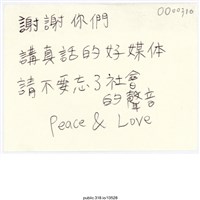 0000316
謝謝你們
講真話的好媒体
請不要忘了社會
的聲音
Peace & Love
public.318.io/10528